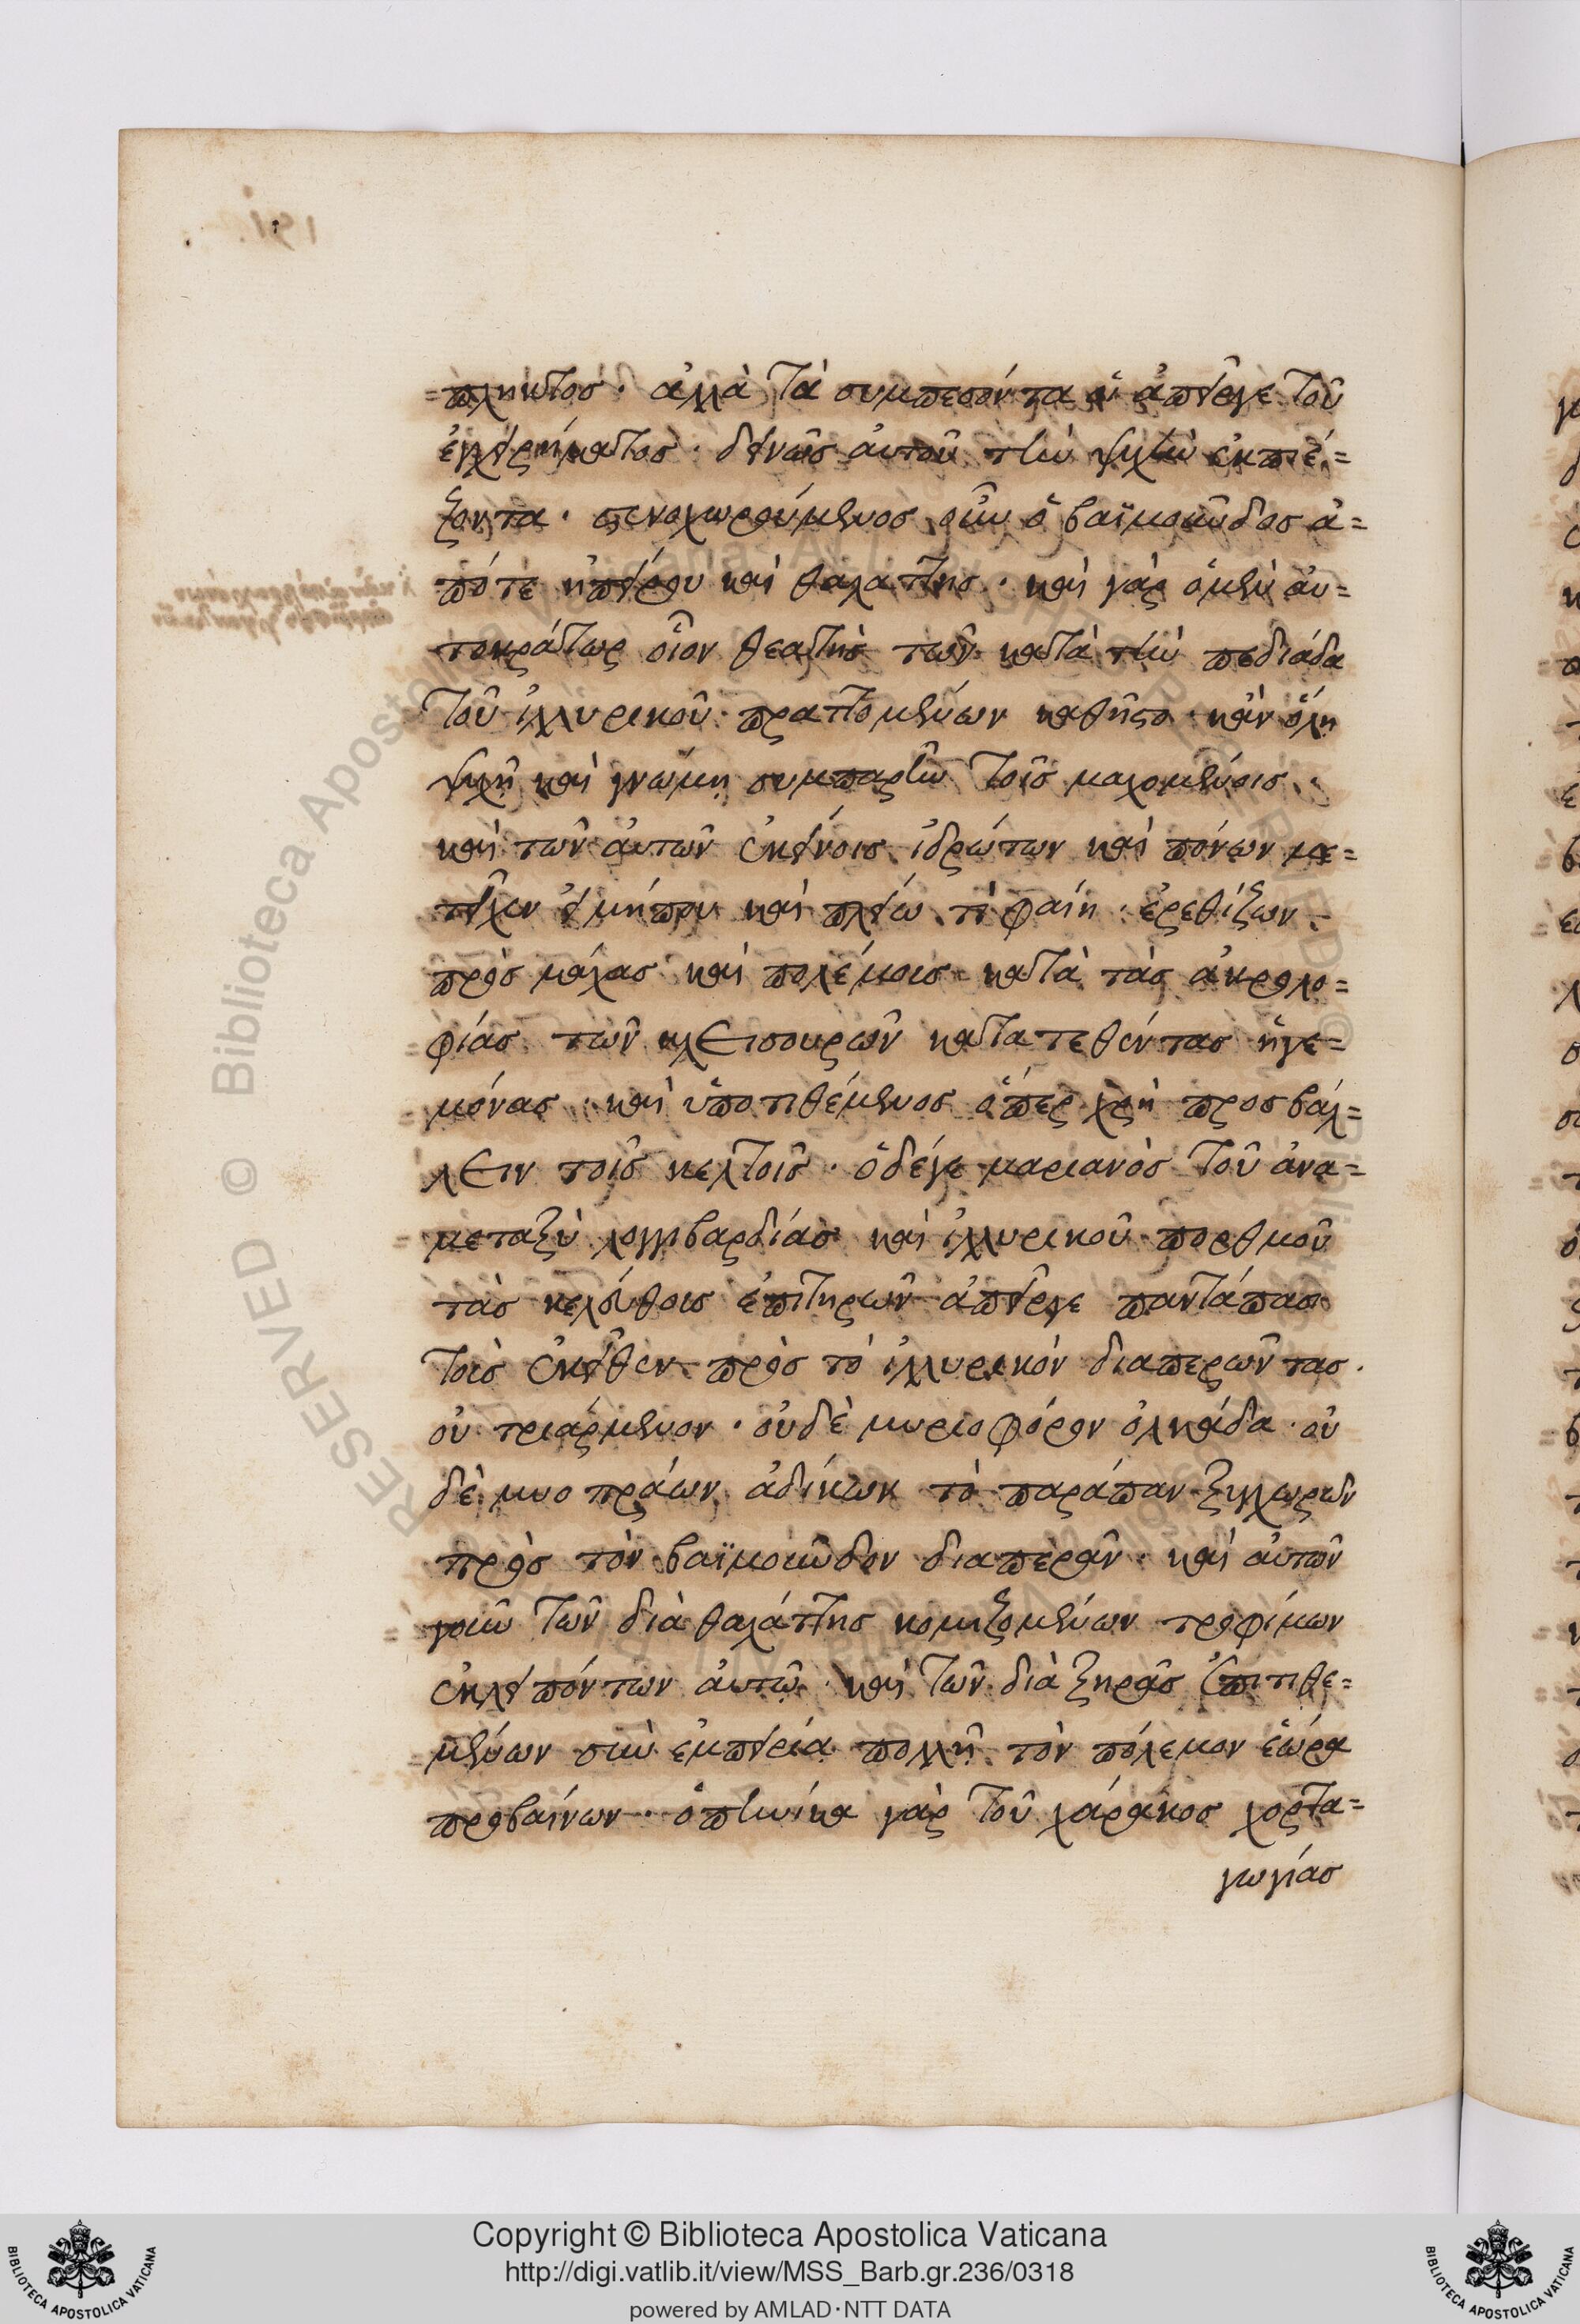 πληκτος· ἀλλὰ τὰ συμπεσόντα οἱ ἀπεῖργε τοῦ
ἐγχειρήματος· δεινῶς αὐτοῦ τὴν ψυχὴν ἐκπιέ=
ζοντα· στενοχωρούμενος οὖν ὁ βαϊμοῦνδος ἀ=
πό τε ἠπείρου καὶ θαλάττης· καὶ γὰρ ὁ μὲν αὐ=
τοκράτωρ οἷον θεατὴς τῶν κατὰ τὴν πεδιάδα
τοῦ ἰλλυρικοῦ πραττομένων καθῆστο· κἂν ὅλη
ψυχῆ καὶ γνώμη συμπαρῆν τοῖς μαχομένοις·
καὶ τῶν αὐτῶν ἐκείνοις ἱδρώτων καὶ πόνων με=
τεῖχεν εἰ μήπου καὶ πλείω τὶς φαίη· ἐρεθίζων
πρὸς μάχας καὶ πολέμους κατὰ τὰς ἀκρολο=
φίας τῶν κλεισουρῶν κατατεθέντας ἡγε=
μόνας· καὶ ὑποτιθέμενος ὅπερ χρὴ προσβάλ=
λειν τοῖς κελτοῖς· ὁ δέ γε μαριανὸς τοῦ ἀνα=
μεταξὺ λογγιβαρδίας καὶ ἰλλυρικοῦ πορθμοῦ
τὰς κελεύθους ἐπιτηρῶν ἀπεῖργε παντάπασι
τοὺς ἐκεῖθεν πρὸς τὸ ἰλλυρικὸν διαπερῶντας·
οὐ τριάρμενον· οὐδὲ μυριοφόρον ὁλκάδα· οὐ
δὲ μυοπράων ἀδίκωκ τὸ παράπαν ξυγχωρῶν
πρὸς τὸν βαϊμοῦνδον διαπερᾶν· καὶ αὐτῶν
γοῦν τῶν διὰ θαλάττης κομιζομένων τροφίμων
ἐκλειπόντων αὐτῷ· καὶ τῶν διὰ ξηρᾶς ἐπιτιθε=
μένων σὺν ἐμπειρία πολλῆ τὸν πόλεμον ἑώρα
προβαίνων· ὁπηνίκα γὰρ τοῦ χάρακος χορτα=
γωγίας
Copyright © Biblioteca Apostolica Vaticana
http://digi.vatlib.it/view/MSS_Barb.gr.236/0318
powered by AMLAD·NTT DATA